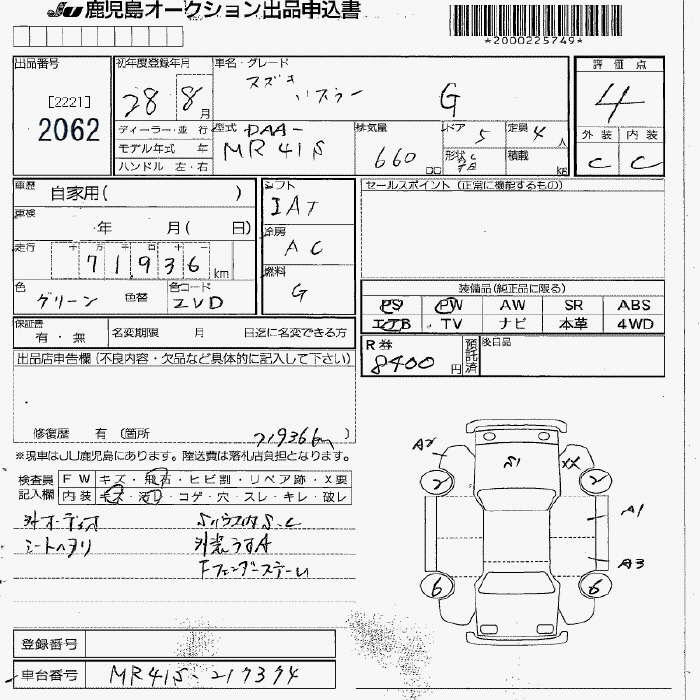 JU 鹿児島オークション出品申込書
*2000225749*
出品番号 初年度登録年月 車名・グレード 評価点
[2221]
2062
28 8月 スズキ ハスラー G 4
ディーラー・並行 型式 DAA- 排気量 ドア 5 定員 4人 外装 内装
モデル年式 年 MR41S 660 cc 形状 積載 kg C C
ハンドル 左・右
車歴 自家用( ) シフト セールスポイント (正常に機能するもの)
IAT
車検 年 月( 日) 冷房
AC
走行 十 万 千 百 十 一
71936 km 燃料
G
色 グリーン 色替 色コード ZVD
装備品(純正品に限る)
PS PW AW SR ABS
エアB TV ナビ 本革 4WD
保証書 有・無 名変期限 月 日迄に名変できる方
R券 8400円 預託済 後日品
出品店申告欄(不良内容・欠品など具体的に記入して下さい)
修復歴 有 (箇所 71936km )
※現車はJU鹿児島にあります。陸送費は落札店負担となります。
検査員記入欄 FW キズ・飛石・ヒビ割・リペア跡・X要
内装 キズ・汚れ・コゲ・穴・スレ・キレ・破レ
外オーディオ
シートヘタリ
外装うすA
Fフェンダーステール
A2 S1 XX
2 2
A1
A3
6 6
登録番号
車台番号 MR41S-217374